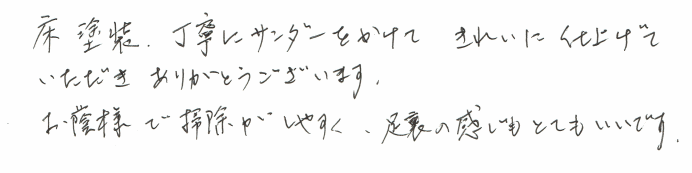 床塗装、丁寧にサンダーをかけて きれいに仕上げて
いただき ありがとうございます。
お蔭様で掃除がしやすく、足裏の感じもとてもいいです。